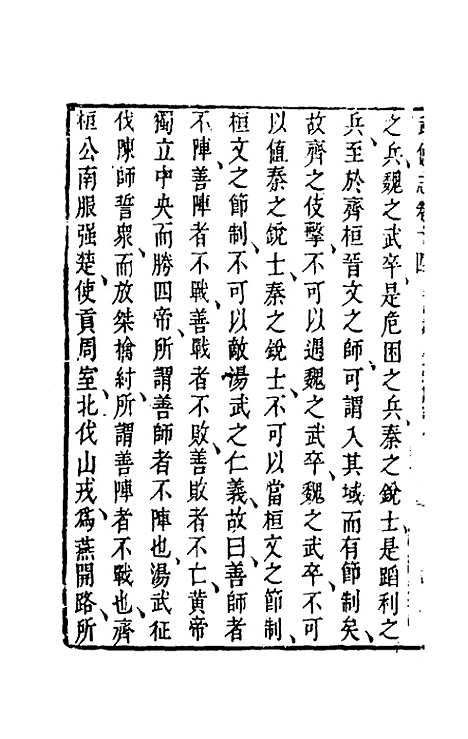 武備志卷十四
之兵魏之武卒是危困之兵秦之銳士是蹈利之
兵至於齊桓晉文之師可謂入其域而有節制矣
故齊之伎擊不可以遇魏之武卒魏之武卒不可
以值秦之銳士秦之銳士不可以當桓文之節制
桓文之節制不可以敵湯武之仁義故曰善師者
不陣善陣者不戰善戰者不敗善敗者不亡黃帝
獨立中央而勝四帝所謂善師者不陣也湯武征
伐陳師誓衆而放桀擒紂所謂善陣者不戰也齊
桓公南服强楚使貢周室北伐山戎爲燕開路所